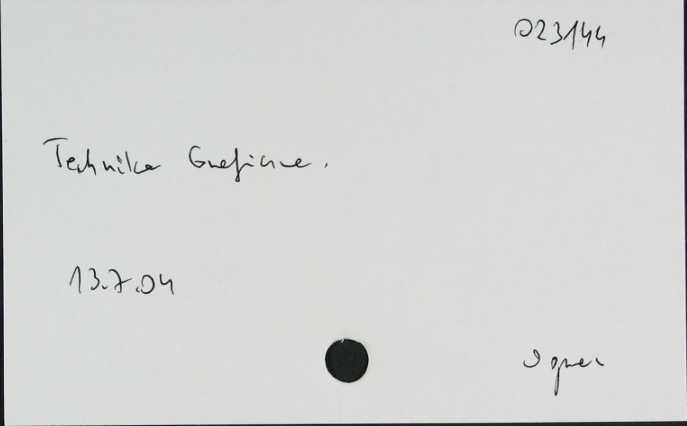 023144
Technika Graficzna.
13.7.04